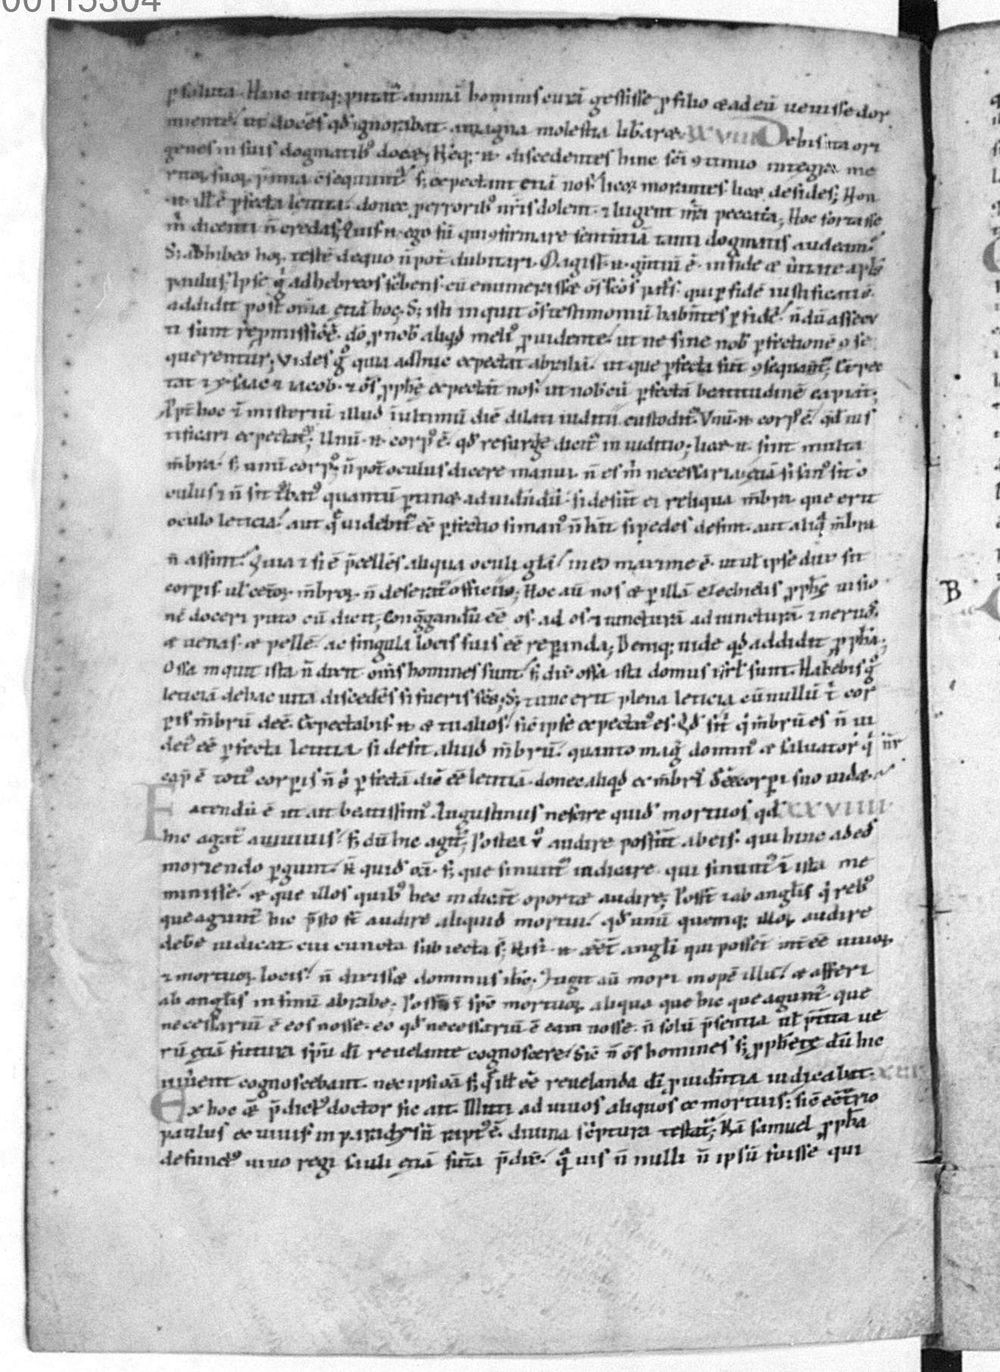 00115304
psoluta. Hinc utiq; putat animā hominis curā gessisse p filio & ad eū uenisse dor
miente. ut doces qd ignorabat. a magna molestia libarae. XXVIII Debis ita ori
genes in suis dogmatib; docet; Neq; n discedentes hinc sci continuo integra me
ritoꝝ suoꝝ pmia csequunt. s; expectant etiā nos. licet morantes. licet desides; Non
n illis ē pfecta leticia. donec p erroribꝰ nris dolent. & lugent nra peccata; Hoc fortasse
m dicenti n̄ credas. Quis n ego sū qui cfirmare sententiā tanti dogmatis audeam.
S; adhibeo hoꝝ testē de quo n̄ pot dubitari. Magist n gentiū ē. in fide & uitate apls
paulus. Ipse g ad hebreos scbens. cū enumerasset os scos pats. qui p fidē iustificati s.
addidit post om̄ia etiā hoc. S; isti inquit os testimoniū habentes p fidē. n̄ dū assecu
ti sunt repmissionē. dō p nob aliqd meliꝰ puidente. ut ne sine nob pfectionē cse
querentur; Vides gͦ quia adhuc expectat abrahā. ut que pfecta sūt csequat; Expec
tat & ysaac & iacob. & os pphe expectāt nos. ut nobcū pfectā beatitudinē capiāt;
Ppt hoc & misteriū illud in ultimū diē dilati iudicii custodit. Vnū n corpꝰ ē. qd ius
tificari expectat; Unū n corpꝰ ē. qd resurge dicit in iuditio; licet n sint multa
mbra. s; unū corpꝰ. n̄ pot oculus dicere manui. n̄ es m necessaria; etiā si sanꝰ sit o
culus & n̄ sit tbatꝰ quantū ptinet ad uidēdū. si desint ei reliqua mbra. que erit
oculo leticia. aut q uidebit ēe pfectio si manꝰ n̄ hāt. si pedes desint. aut aliq mbra
n̄ assint. Quia & si ē pcellēs aliqua oculi gla. in eo maxime ē. ut ul ipse dux sit
corpis. ul ceteroꝝ mbroꝝ n̄ deseratꝰ officiis; Hoc aū nos & p illā ezechielis pphe uisio
nē doceri puto cū dicit; Conggandū ēe os ad os. & iuncturā ad iuncturā. & neruos.
& uenas. & pellē. ac singula locis suis ēe reparanda; Deniq; uide qd addidit ppha;
Ossa inquit ista n̄ dixit om̄s homines sunt. s; dix ossa ista domus isrl sunt. Habebis gͦ
leticiā de hac uita discedēs si fueris scs; S; tunc erit plena leticia cū nullū t cor
pis mbrū deē. Expectabis n & tu alios. sic ipse expectatꝰ es. Qd si t q mbrū es n̄ ui
det ēe pfecta letitia si desit aliud mbrū. quanto mag dominꝰ & saluator q nr
cap ē totiꝰ corpis n̄ s pfectā dic ēe letitiā. donec aliqd ex mbris deēe corpi suo uidet.
Fatendū ē ut ait beatissimꝰ Augustinus nescire quid mortuos qd XXVIIII
hic agat a uiuis. s; dū hic agit; Postea ū audire possunt ab eis. qui hinc ad eos
moriendo pgunt. n̄ quid oā. s; que sinunt indicare. qui sinunt & ista me
minisse. & que illos quibꝰ hec indicāt oportet audire; Posst & ab anglis q rebꝰ
que agunt hic psto st audire aliquid mortui. qd unū quemq; illoꝝ audire
debe iudicat cui cuncta subiecta s; Nisi n eēt angli qui possent intēe uiuoꝝ
& mortuoꝝ locis. n̄ dixisset dominus ihc. Fugit aū mori inopē illū. & afferri
ab anglis in sinū abrahe; Possunt & spc mortuoꝝ aliqua que hic que agunt. que
necessariū ē eos nosse. eo qd necessariū ē eam nosse. n̄ solū psentia ul pterita ue
rū etiā futura spū dī reuelante cognoscere. Sic n̄ os homines s; pphete dū hic
uiuent cognoscebant. nec ipsi oā s; q ill ēe reuelanda dī puidentia iudicabat. XXX
Ex hoc & pdictꝰ doctor sic ait. Mitti ad uiuos aliquos ex mortuis. sic ecōtrio
paulus ex uiuis in paradysū raptꝰ ē. diuina scriptura testat; Nā samuel ppha
defunctꝰ uiuo regi sauli etiā futa pdix. q uis n̄ nulli n̄ ipsū fuisse qui
B